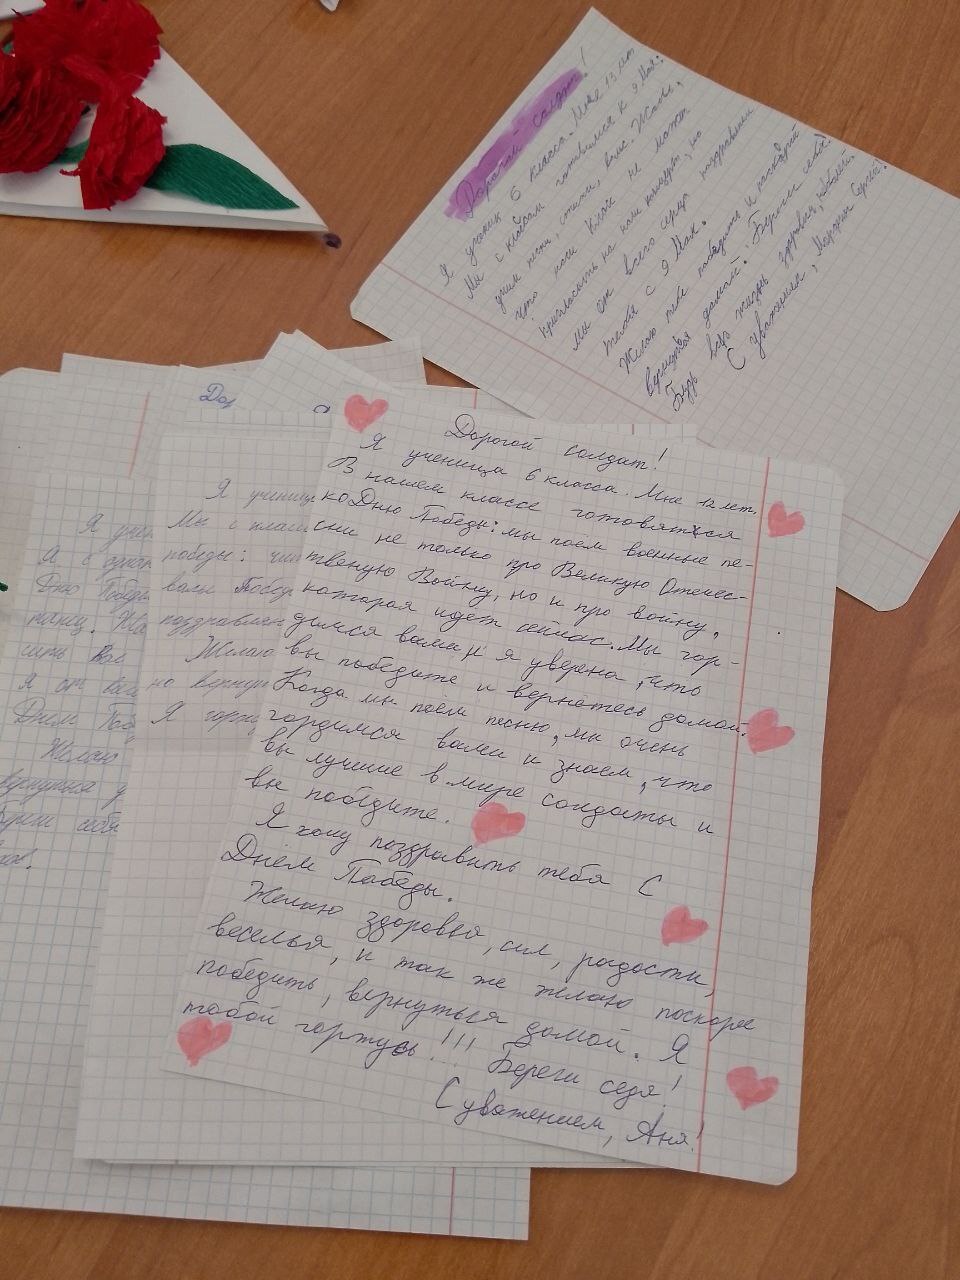 Дорогой солдат!
Я ученик 6 класса. Мне 13 лет
Мы с классом готовимся к 9 Мая:
учим песни, стихи, вальс. Жаль,
что наш класс не может
пригласить на наш концерт, но
мы от всего сердца поздравляем
тебя с 9 Мая.
Желаю тебе победить и поскорей
вернуться домой. Береги себя.
Будь всю жизнь здоровым,
С уважением,
Дорогой солдат!
Я ученица 6 класса. Мне 12 лет.
В нашем классе готовятся
ко Дню Победы: мы поём военные пе-
сни не только про Великую Отечес-
твеную Войну, но и про войну,
которая идет сейчас. Мы гор-
димся вами и я уверена, что
вы победите и вернётесь домой.
Когда мы поём песню, мы очень
гордимся вами и знаем, что
вы лучшие в мире солдаты и
вы победите.
Я хочу поздравить тебя с
Днём Победы.
Желаю здоровья, сил, радости,
веселья, и так же желаю поскорее
победить, вернуться домой. Я
тобой горжусь!!! Береги себя!
С уважением, Аня!
Дор
Я учениц
Мы с класс
победы:
вальс Побед
поздравляем
Желаю
но вернут
Я горж
Я учен
А с
Дню Победы
танец. Жа
сить Вас
Я от все
Днём Поб
Желаю
вернуться
береги себя